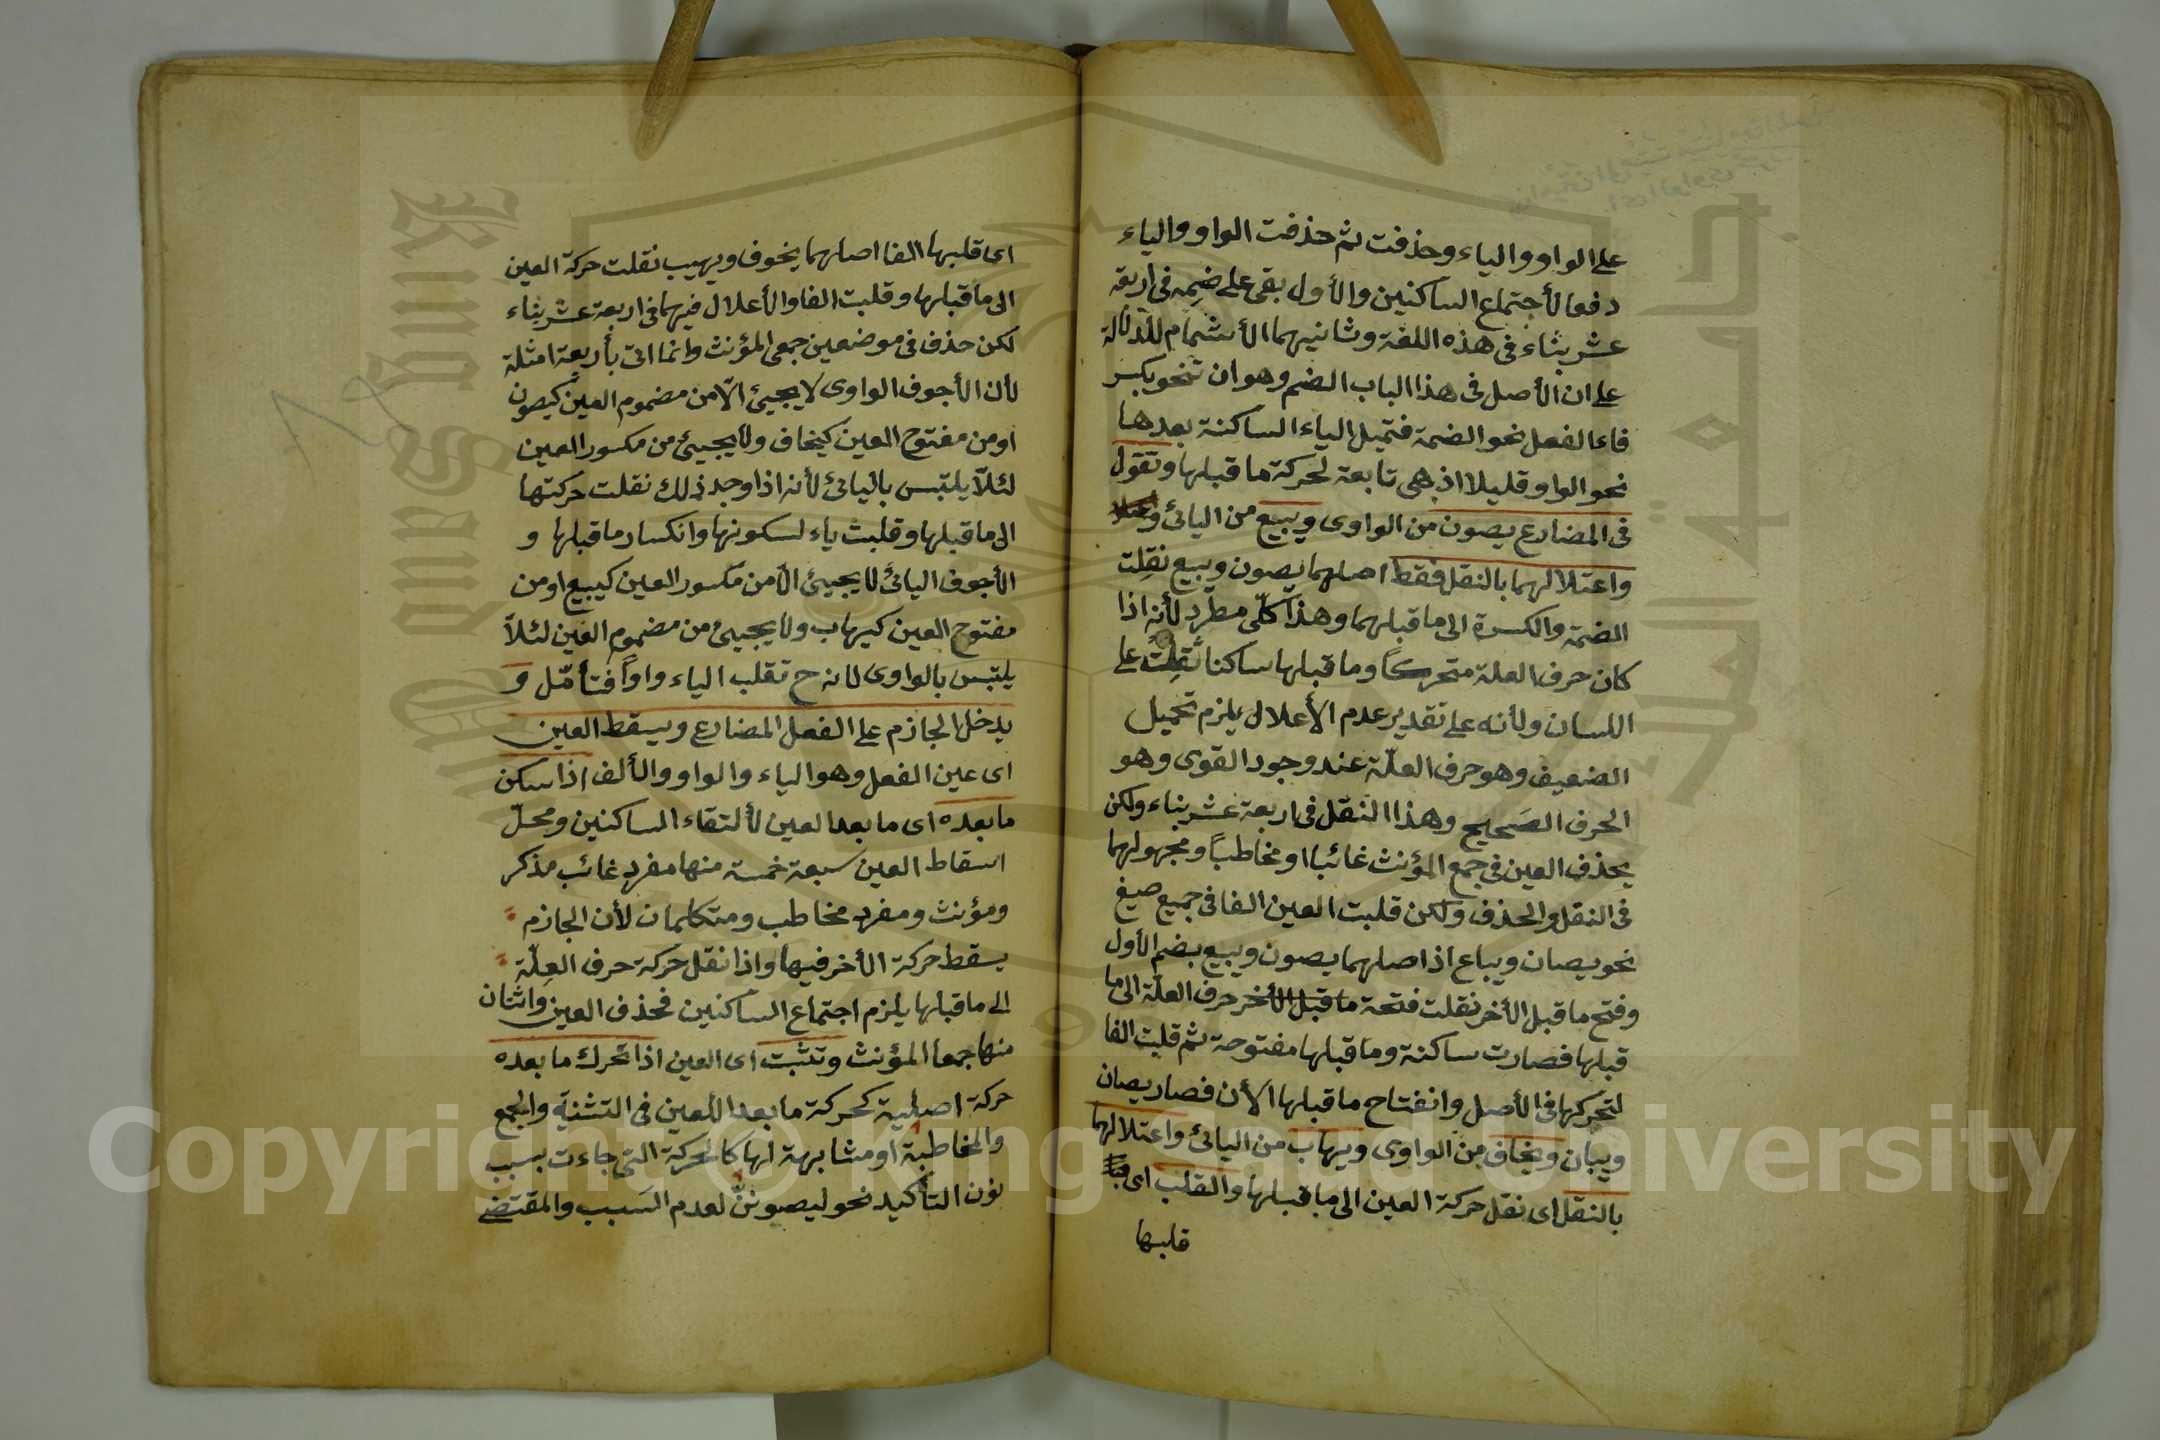 على الواو والياء وحذفت ثم حذفت الواو والياء
دفعا لأجتماع الساكنين والأول بقى على ضمه فى اربعة
عشر بناء فى هذه اللغة وثانيهما الأشمام للدلالة
على ان الأصل فى هذا الباب الضم وهو ان تنحو بكسر
فاء الفعل نحو الضمة فتميل الياء الساكنة بعدها
نحو الواو قليلا اذ هى تابعة لحركة ما قبلها وتقول
فى المضارع يصون من الواوى ويبيع من اليائى
واعتلالهما بالنقل فقط اصلهما يصون ويبيع نقلت
الضمة والكسرة الى ما قبلهما وهذا كلّى مطرد لأنه اذا
كان حرف العلة متحركاً وما قبلها ساكنا ثقلت على
اللسان ولأنه على تقدير عدم الأعلال يلزم تحميل
الضعيف وهو حرف العلّة عند وجود القوى وهو
الحرف الصحيح وهذا النقل فى اربعة عشر بناء ولكن
يحذف العين فى جمع المؤنث غائبا او مخاطباً ومجهولهما
فى النقل والحذف ولكن قلبت العين الفا فى جميع صيغ
نحو يصان ويباع اذ اصلهما يصون ويبيع بضم الأول
وفتح ما قبل الأخر نقلت فتحة ما قبل الأخر حرف العلّة الى ما
قبلها فصارت ساكنة وما قبلها مفتوحة ثم قلبت الفا
لتحركها فى الأصل وانفتاح ما قبلها الأن فصار يصان
ويبان ويخاف من الواوى ويهاب من اليائى واعتلالهما
بالنقل اى نقل حركة العين الى ما قبلها والقلب اى
قلبها
اى قلبها الفا اصلهما يخوف ويهيب نقلت حركة العين
الى ما قبلها وقلبت الفا والأعلال فيهما فى اربعة عشر بناء
لكن حذف فى موضعين جمعى المؤنث وانما اتى بأربعة امثلة
لأن الأجوف الواوى لا يجيئ الّا من مضموم العين كيصون
او من مفتوح العين كيخاف ولا يجيئ من مكسور العين
لئلّا يلتبس باليائى لأنه اذا وجد ذلك نقلت حركتها
الى ما قبلها وقلبت ياء لسكونها وانكسار ما قبلها و
الأجوف اليائى لا يجيئ الّا من مكسور العين كيبيع او من
مفتوح العين كيهاب ولا يجيئ من مضموم العين لئلاّ
يلتبس بالواوى لانه ح تقلب الياء واواً فتأمّل و
يدخل الجازم على الفعل المضارع ويسقط العين
اى عين الفعل وهو الياء والواو والألف اذا سكن
ما بعده اى ما بعد العين لألتقاء الساكنين ومحلّ
اسقاط العين سبعة خمسة منها مفرد غائب مذكر
ومؤنث ومفرد مخاطب ومتكلمان لأن الجازم
يسقط حركة الأخر فيها واذا نقل حركة حرف العلّة
الى ما قبلها يلزم اجتماع الساكنين فحذف العين واثنان
منها جمعا المؤنث وتثبت اى العين اذا تحرك ما بعده
حركة اصلية كحركة ما بعد العين فى التثنية والجمع
والمخاطبة او مشابهة لها كالحركة التى جاءت بسبب
نون التأكيد نحو ليصوننّ لعدم السبب والمقتضى
Copyright © King Saud University
جامعة الملك سعود
King Saud University